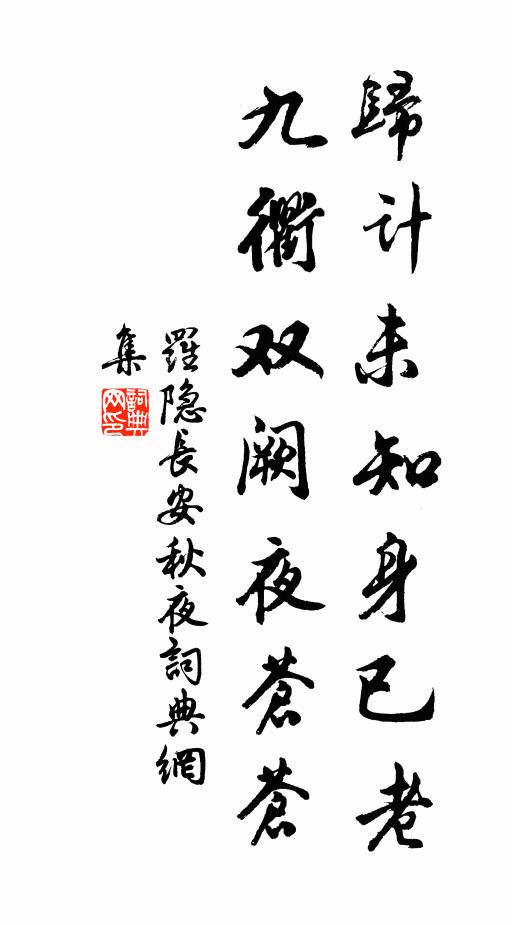 歸计未知身已老
九衢双阙夜蒼蒼
羅隐長安秋夜詞典網
集
詞典
网印